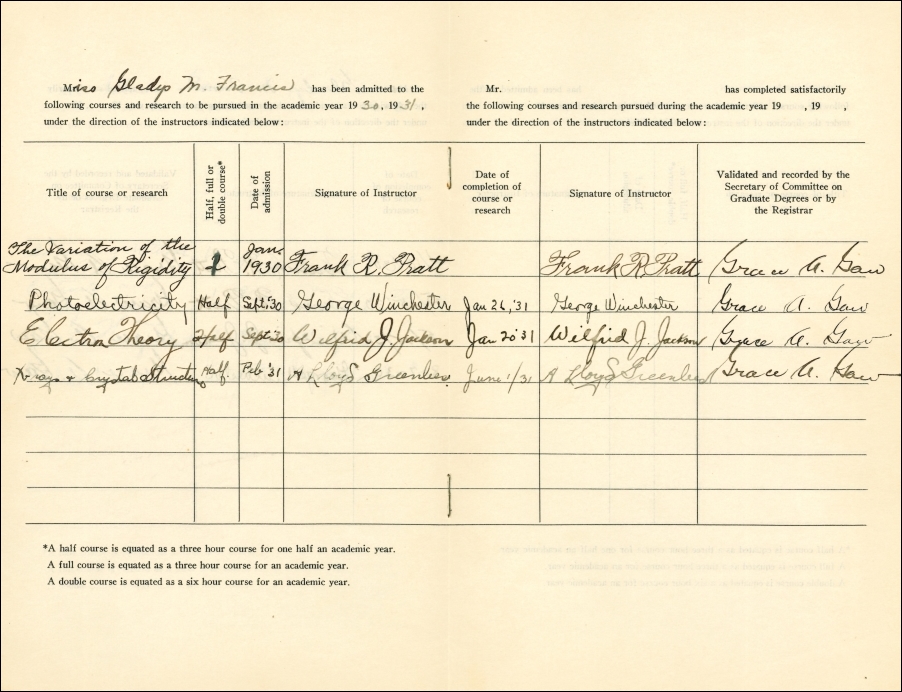 Miss Gladys M. Francis has been admitted to the
following courses and research to be pursued in the academic year 1930, 1931,
under the direction of the instructors indicated below:
Mr. has completed satisfactorily
the following courses and research pursued during the academic year 19 , 19 ,
under the direction of the instructors indicated below:
Title of course or research
Half, full or
double course*
Date of
admission
Signature of Instructor
Date of
completion of
course or
research
Signature of Instructor
Validated and recorded by the
Secretary of Committee on
Graduate Degrees or by
the Registrar
The Variation of the
Modulus of Rigidity Jan. 1930 Frank R. Pratt Frank R. Pratt Grace A. Gaw
Photoelectricity Half Sept.'30 George Winchester Jan 26,'31 George Winchester Grace A. Gaw
Electron Theory Half Sept.'30 Wilfrid J. Jackson Jan 20 '31 Wilfrid J. Jackson Grace A. Gaw
X-rays & Crystal Structure Half. Feb '31 A Lloyd Greenlees June 1/31 A Lloyd Greenlees Grace A. Gaw
*A half course is equated as a three hour course for one half an academic year.
A full course is equated as a three hour course for an academic year.
A double course is equated as a six hour course for an academic year.